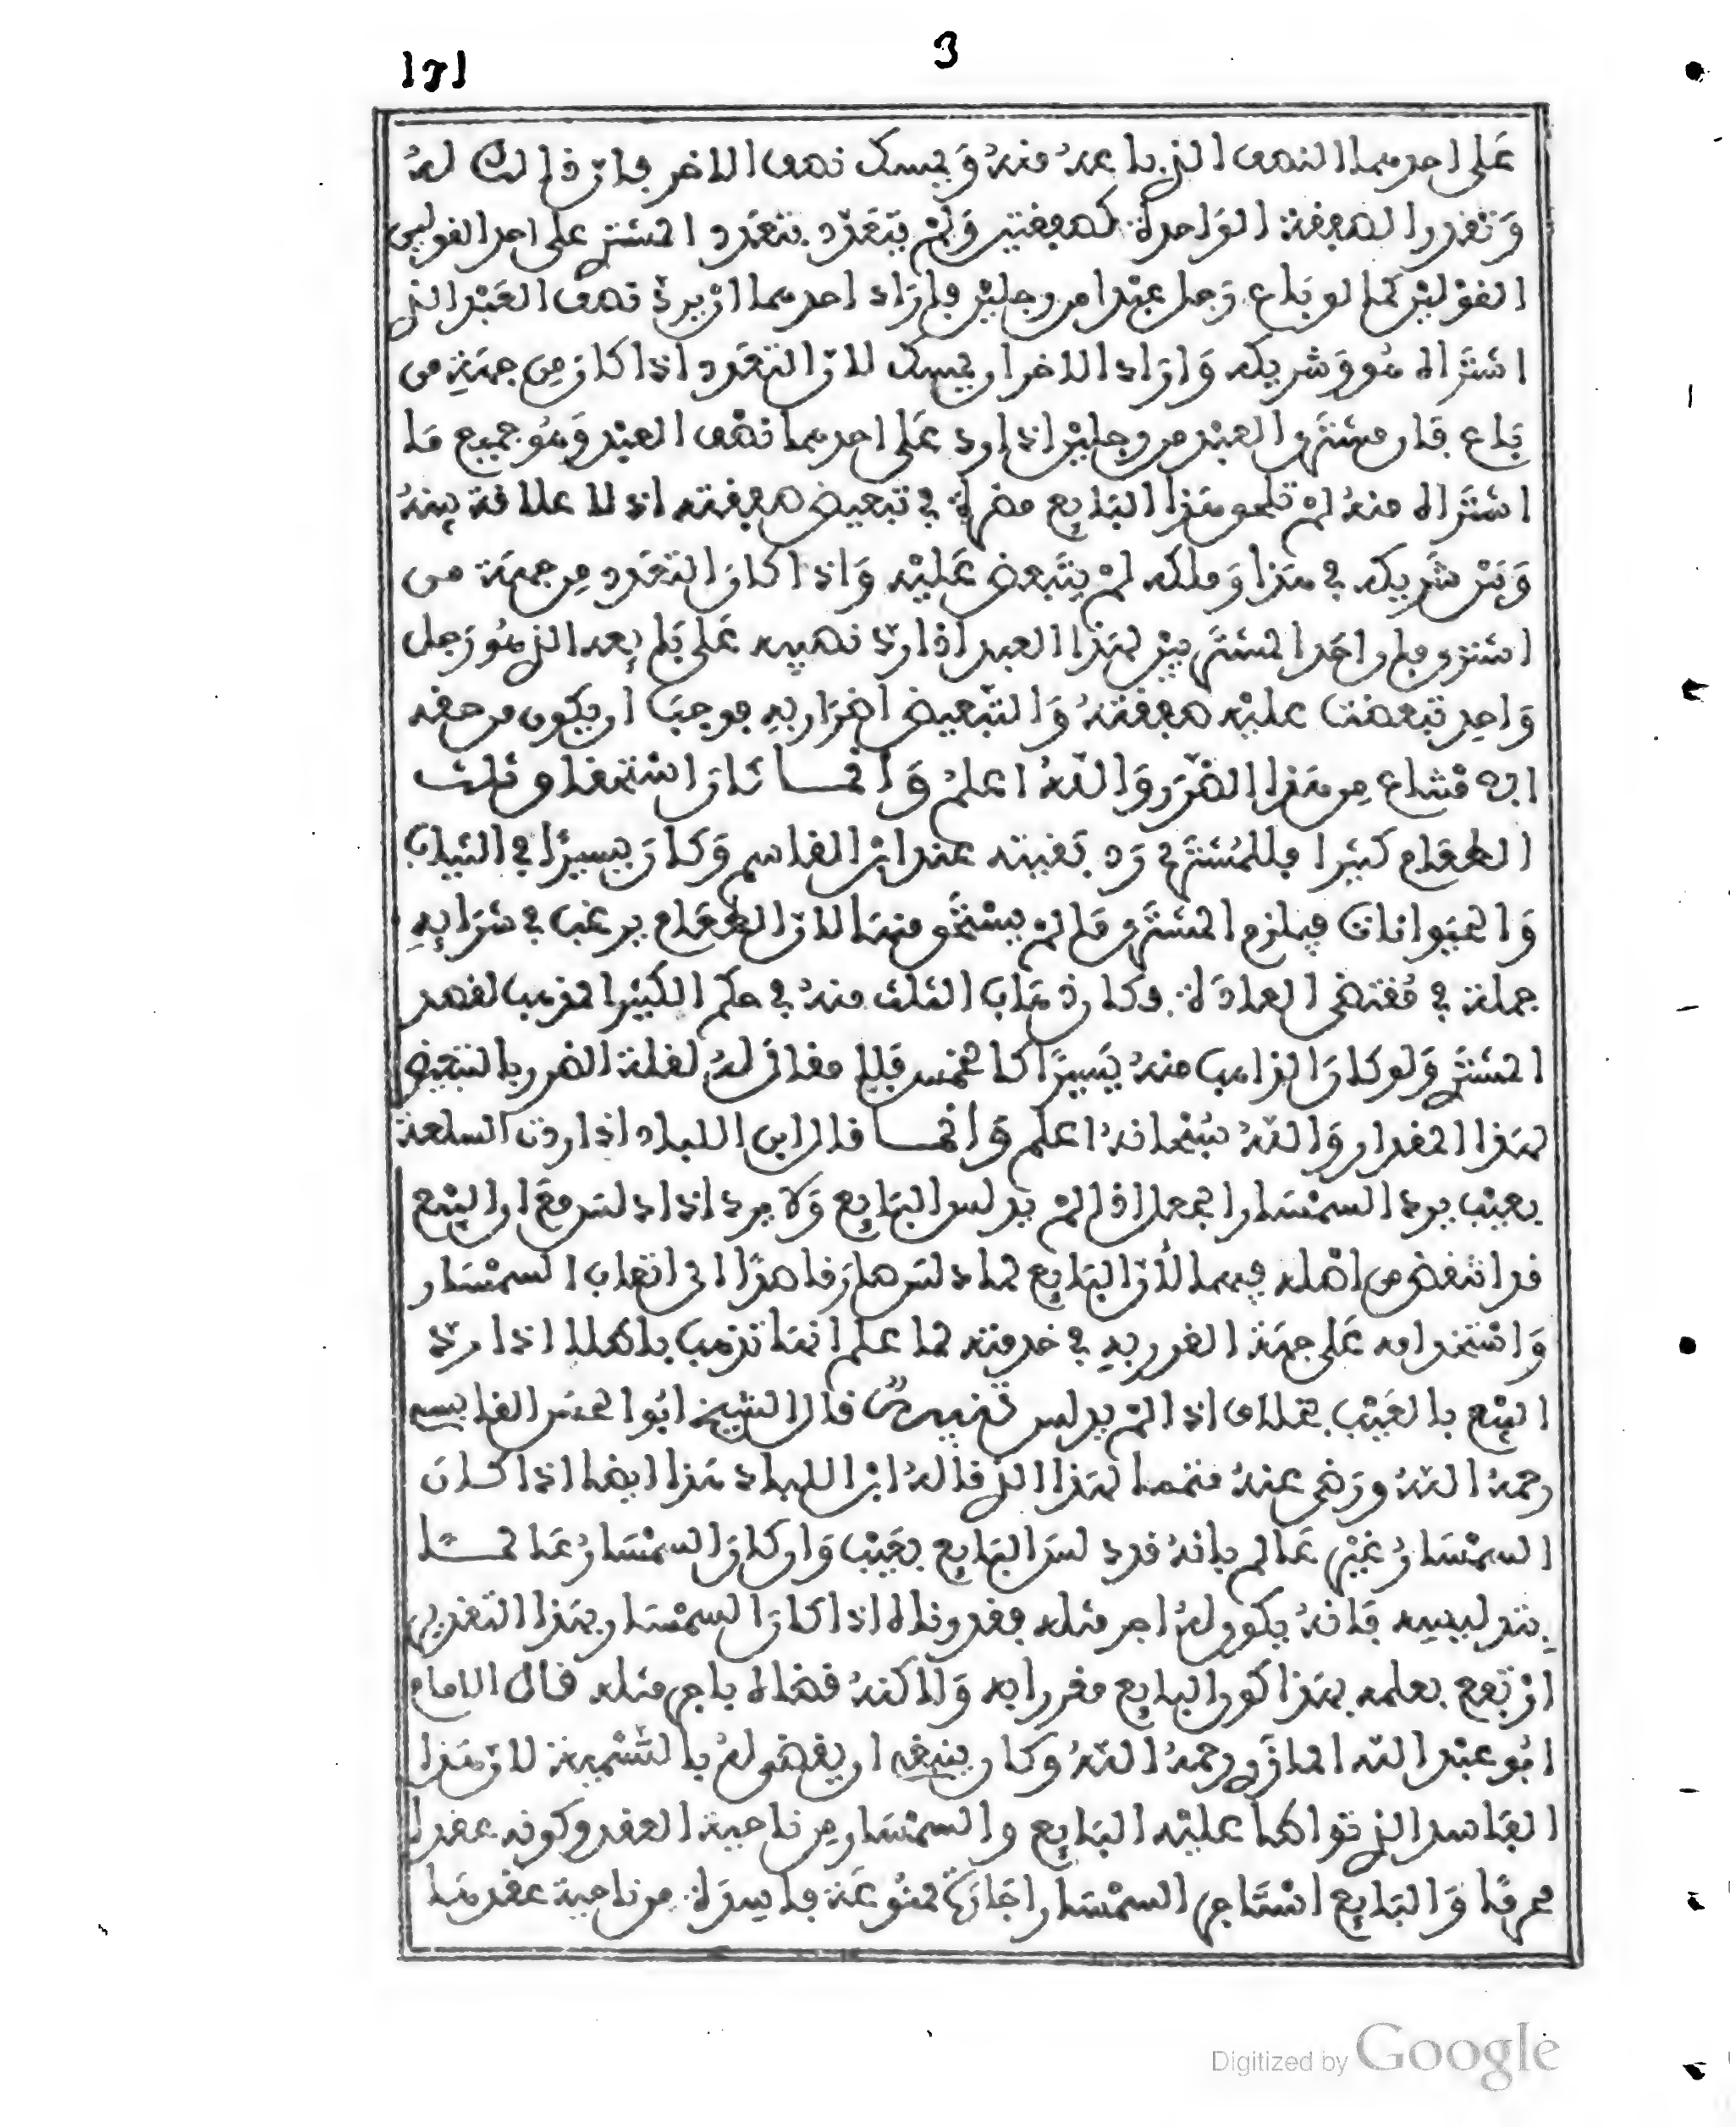 3
171
على احدهما النصف الذي باعه منه ويمسك نصف الاخر فان ذلك له
وتقدر الصفقة الواحدة كصفقتين ولم يتعدد بتعدد المشتري على احد القولين
القولين كما لو باع رجل عبدا من رجلين فاراد احدهما ان يرد نصف العبد الذي
اشتراه هو وشريكه واراد الاخر ان يمسك لان التعدد اذا كان من جهة من
باع فان مشتري العبد من رجلين اذا رد على احدهما نصف العبد وهو جميع ما
اشتراه منه لم تلحق هذا البايع مضرة في تبعيض صفقته اذ لا علاقة بينه
وبين شريكه في هذا وملكه لم يتبعض عليه واذا كان التعدد من جهة من
اشترى فان احد المشتريين لهذا العبد اذا رد نصيبه على بايعه الذي هو رجل
واحد تبعضت عليه صفقته والتبعيض اضرار به فوجب ان يكون من حقه
الامتناع من هذا الضرر والله اعلم وانما كان استحقاق ثلث
الطعام كثيرا فللمشتري رد بقيته عند ابن القاسم وكان يسيرا في الثياب
والحيوانات فيلزم المشتري ما لم يستحق منها لان الطعام يرغب في شرايه
جملة في مقتضى العادة فكان ذهاب الثلث منه في حكم الكثير المذهب لقصد
المشتري ولو كان الذاهب منه يسيرا كالخمس فلا مقال له لقلة الضرر بالتبعيض
لهذا المقدار والله سبحانه اعلم وانما قال ابن اللباد اذا ردت السلعة
بعيب يرد السمسار الجعل اذا لم يدلس البايع ولا يرد اذا دلس مع ان البيع
قد انتقض من اصله فيهما لان البايع لما دلس صار قاصدا الى اتعاب السمسار
واستخدامه على جهة الغرر به في خدمته لما علم انها تذهب باطلا اذا رد
البيع بالعيب بخلاف اذا لم يدلس تنبيه قال الشيخ ابو الحسن القابسي
رحمه الله ورضي عنه متمما لهذا الذي قاله ابن اللباد هذا ايضا اذا كان
السمسار غير عالم بانه قد دلس البايع بعيب وان كان السمسار عالما
بتدليسه فانه يكون له اجر مثله فقد وناه اذا كان السمسار بهذا التقدير
ارتفع بعلمه بهذا كون البايع مغررا به ولاكنه قضاه باجر مثله قال الامام
ابو عبد الله المازري رحمه الله وكان ينبغي ان يقضى له بالتسمية لان هذا
الفاسد الذي تواطا عليه البايع والسمسار من ناحية العقد وكونه عقدا
محرما والبايع استاجر السمسار اجارة ممنوعة فاسدة من ناحية عقدها
Digitized by Google